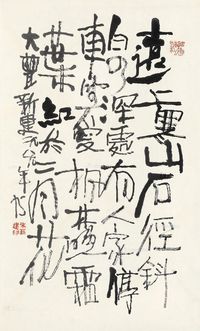 遠上寒山石徑斜
白雲深處有人家停
車坐愛楓林晚霜
葉紅於二月花